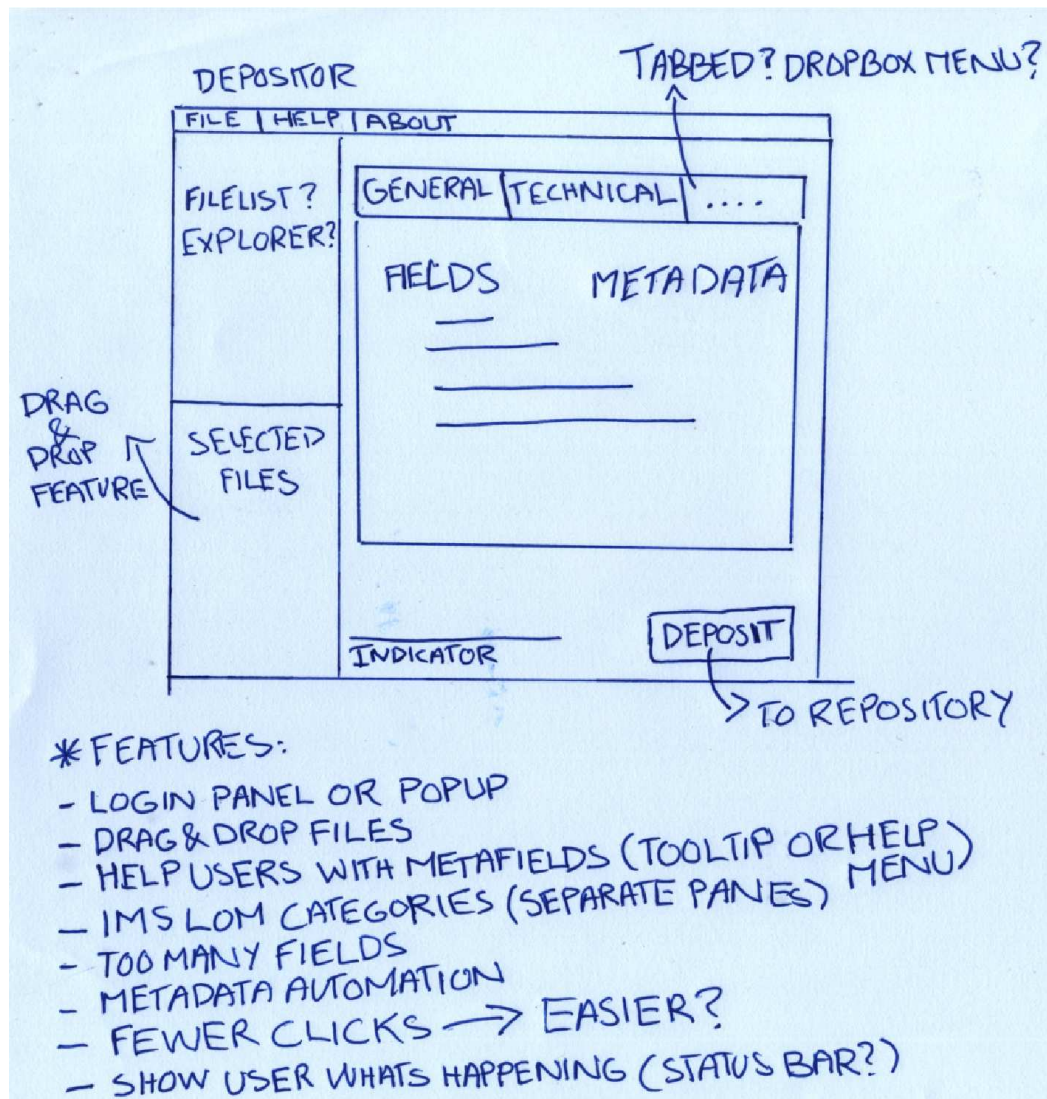 DEPOSITOR
TABBED? DROPBOX MENU?
FILE | HELP | ABOUT
FILELIST?
EXPLORER?
GENERAL
TECHNICAL
....
FIELDS
METADATA
DRAG
&
DROP
FEATURE
SELECTED
FILES
INDICATOR
DEPOSIT
TO REPOSITORY
* FEATURES:
- LOGIN PANEL OR POPUP
- DRAG & DROP FILES
- HELP USERS WITH METAFIELDS (TOOLTIP OR HELP
MENU)
- IMS LOM CATEGORIES (SEPARATE PANES)
- TOO MANY FIELDS
- METADATA AUTOMATION
- FEWER CLICKS → EASIER?
- SHOW USER WHATS HAPPENING (STATUS BAR?)